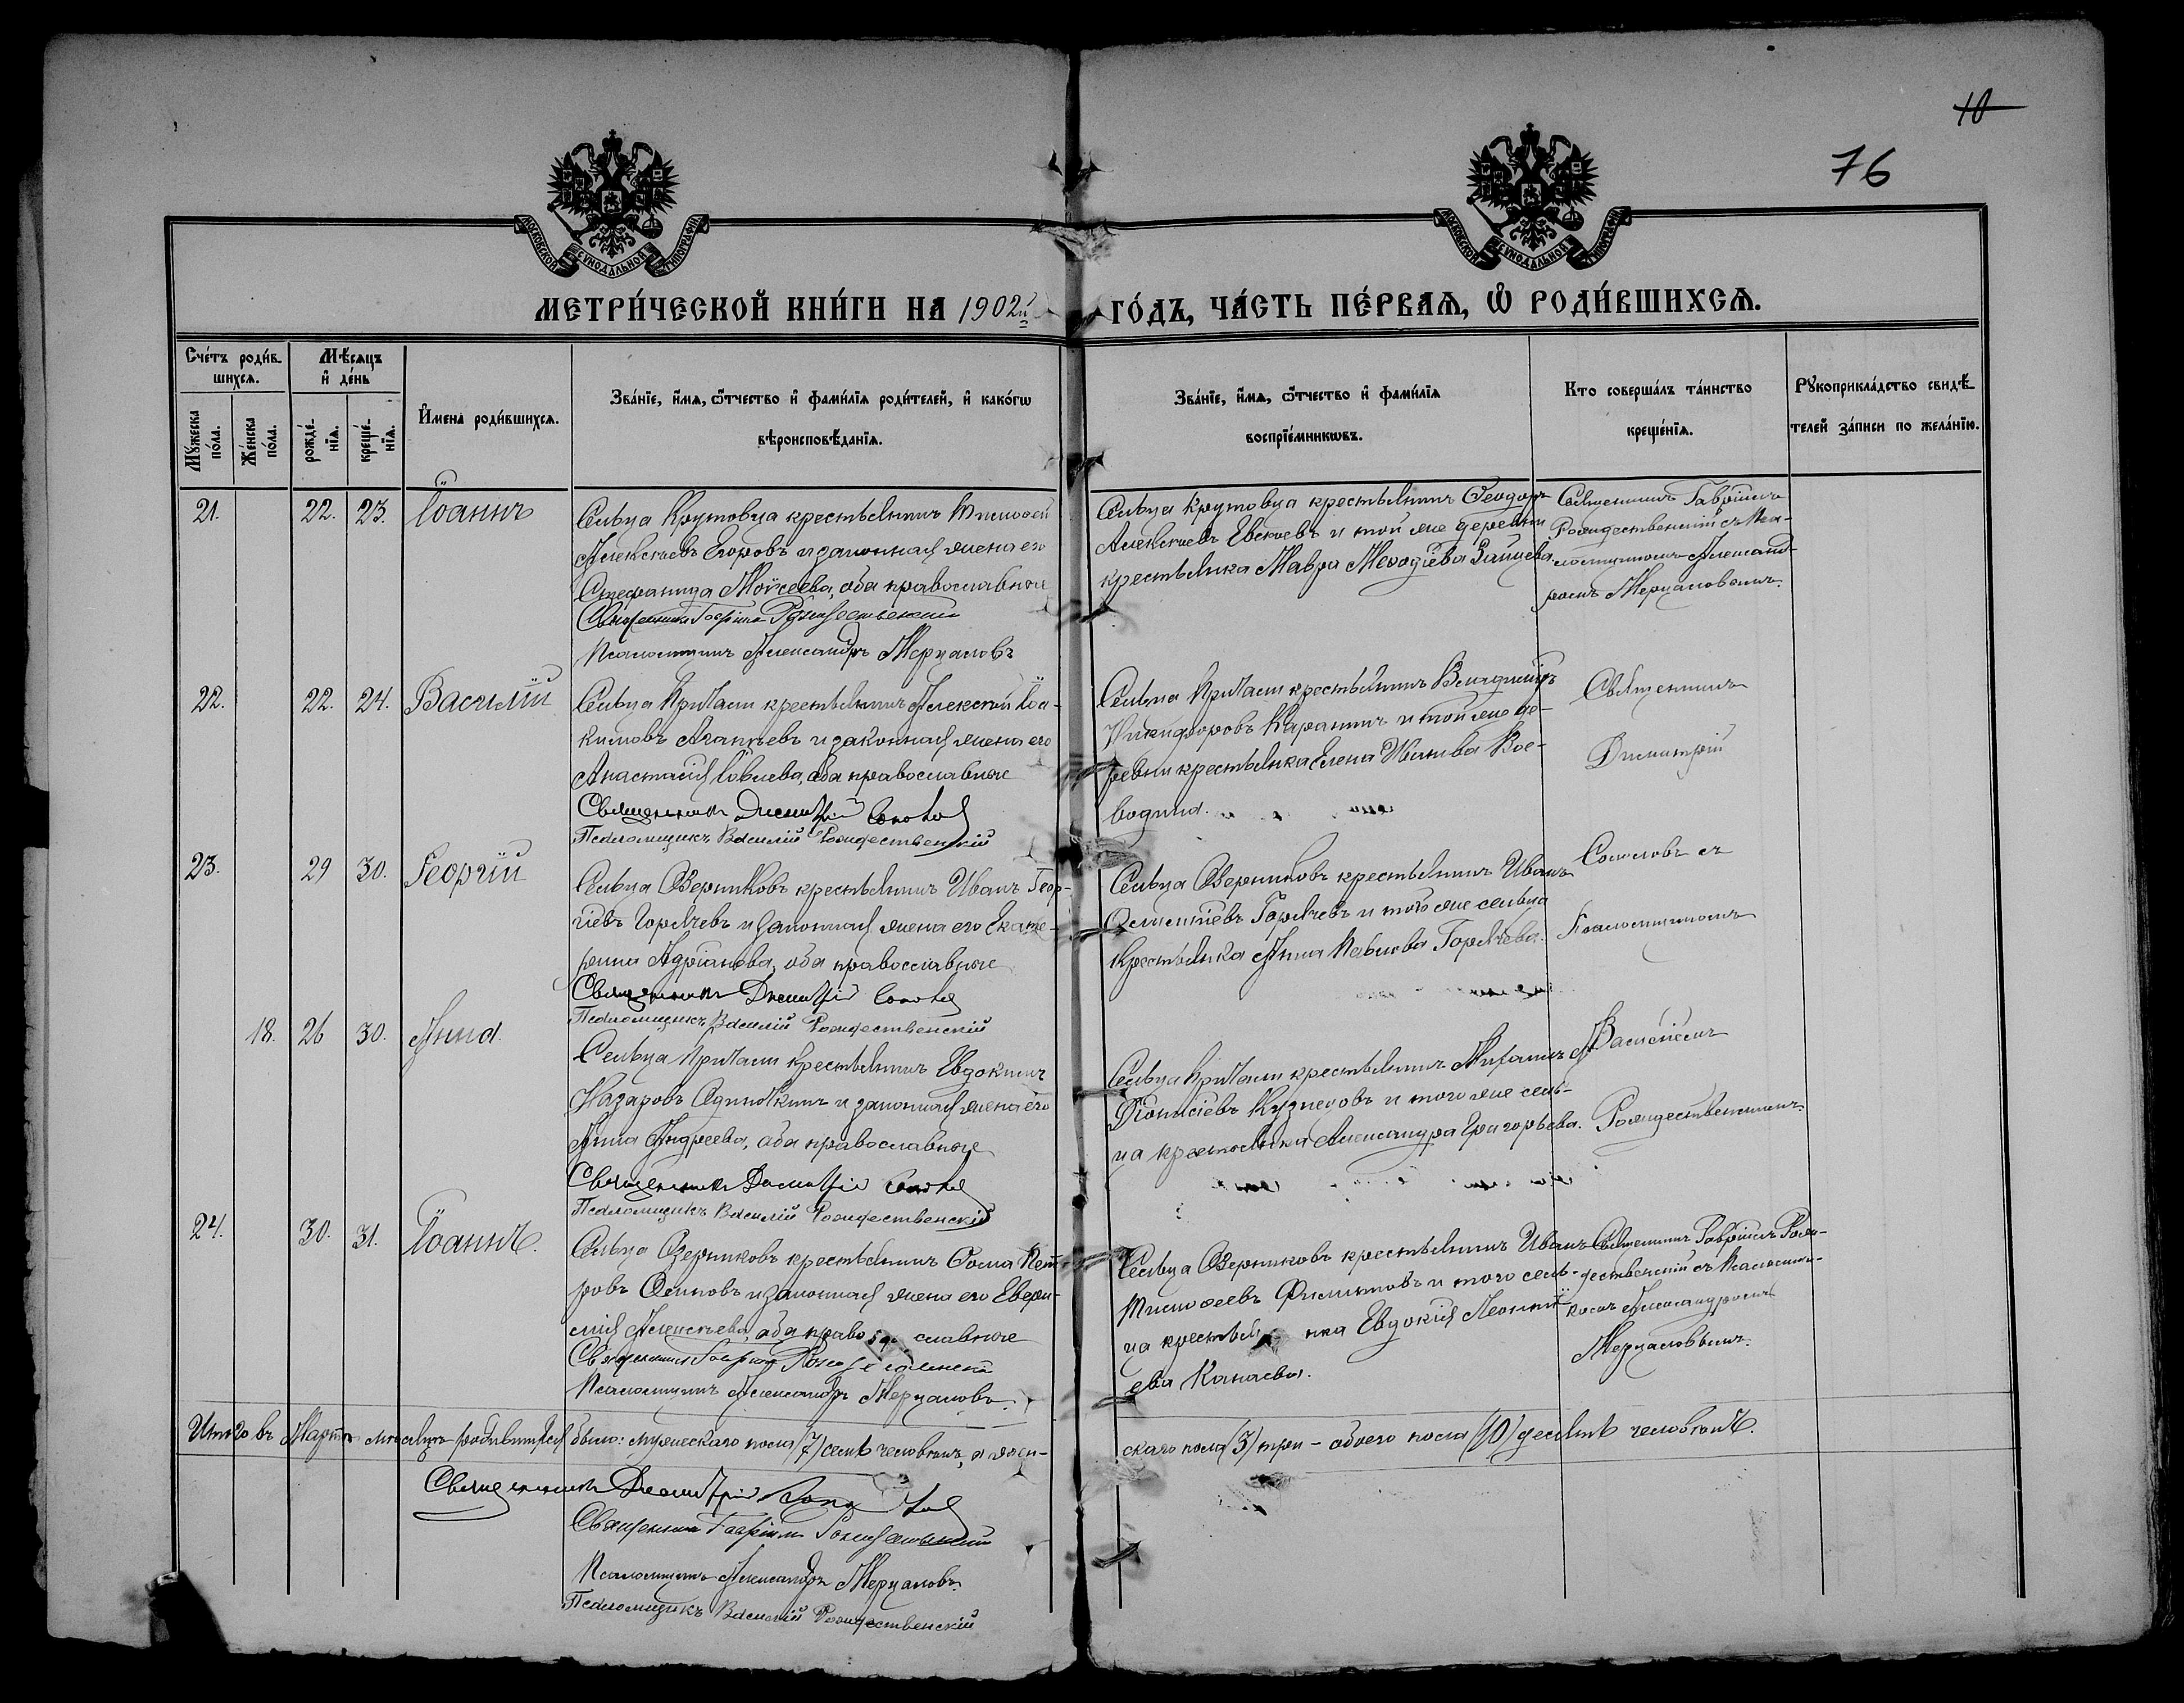 10
76
МОСКОВСКОЙ СѴНОДАЛЬНОЙ ТИПОГРАФІИ
МОСКОВСКОЙ СѴНОДАЛЬНОЙ ТИПОГРАФІИ
МЕТРИ́ЧЕСКОЙ КНИ́ГИ НА 1902й ГО́ДЪ, ЧА́СТЬ ПЕ́РВАѦ, Ѡ РОДИ́ВШИХСѦ.
Сче́тъ роди́в-
шихсѧ.
Мꙋжеска по́ла.
Же́нска по́ла.
Мѣ́сѧцъ
и҆ де́нь
рожде́-
нїѧ.
креще́-
нїѧ.
И҆мена̀ роди́вшихсѧ.
Зва́нїе, и҆́мѧ, ѻ҆́тчество и҆ фами́лїѧ роди́телей, и҆ како́гѡ
вѣроисповѣ́данїѧ.
Зва́нїе, и҆́мѧ, ѻ҆́тчество и҆ фами́лїѧ
воспрїе́мникѡвъ.
Кто̀ соверша́лъ та́инство
креще́нїѧ.
Рꙋкоприкла́дство свидѣ́-
телей за́писи по жела́нїю.
21. 22. 23. Іоаннъ
Сельца Крутовца крестьянинъ Тимоѳей
Алексѣевъ Егоровъ и законная жена его
Стефанида Моисеева, оба православные
Священникъ Гавріилъ Рождественскій
Псаломщикъ Александръ Мерцаловъ
Сельца Крутовца крестьянинъ Ѳеодоръ
Алексѣевъ Евсѣевъ и той же деревни
крестьянка Мавра Меѳодіева Зайцева
Священникъ Гавріилъ
Рождественскій съ Пса-
ломщикомъ Александ-
ромъ Мерцаловымъ.
22. 22. 24. Василій
Сельца Кричаги крестьянинъ Алексѣй Іоа-
кимовъ Агапѣевъ и законная жена его
Анастасія Іовлева, оба православные
Священникъ Димитрій Соколовъ
Псаломщикъ Василій Рождественскій
Никифоровъ и той же де-
ревни крестьянка Елена Иванова Вое-
водина.
Священникъ
Димитрій
23. 29 30. Георгій
Сельца Озерниковъ крестьянинъ Иванъ Геор-
гіевъ Горячевъ и законная жена его Екате-
рина Адріанова, оба православные
Священникъ Димитрій Соколовъ
Псаломщикъ Василій Рождественскій
Сельца Озерниковъ крестьянинъ Иванъ
Горячевъ и того же сельца
крестьянка Анна Павлова Горячева.
Соколовъ съ
Псаломщикомъ
18. 26 30. Анна.
Сельца Кричаги крестьянинъ Евдокимъ
Назаровъ Одиночкинъ и законная жена его
Анна Андреева, оба православные
Священникъ Димитрій Соколовъ
Псаломщикъ Василій Рождественскій
Сельца Кричаги крестьянинъ Михаилъ
Діонисіевъ Кузнецовъ и того же сель-
ца крестьянка Александра Григорьева.
Василіемъ
Рождественскимъ.
24. 30. 31. Іоаннъ.
Сельца Озерниковъ крестьянинъ Ѳома Пет-
ровъ Осиповъ и законная жена его Евфи-
мія Алексѣева, оба православные
Священникъ Гавріилъ Рождественскій
Псаломщикъ Александръ Мерцаловъ.
Сельца Озерниковъ крестьянинъ Иванъ
Тимоѳеевъ Филипповъ и того сель-
ца крестьянка Евдокія Леонтi-
ева Канаева.
Священникъ Гавріилъ Рож-
дественскій съ Псаломщи-
комъ Александромъ
Мерцаловымъ.
Итого въ Мартѣ мѣсяцѣ родившихся было: мужескаго пола (7) семь человѣкъ, а жен-
скаго пола (3) три – обоего пола (10) десять человѣкъ.
Священникъ Димитрій Соколовъ
Священникъ Гавріилъ Рождественскій
Псаломщикъ Александръ Мерцаловъ.
Псаломщикъ Василій Рождественскій